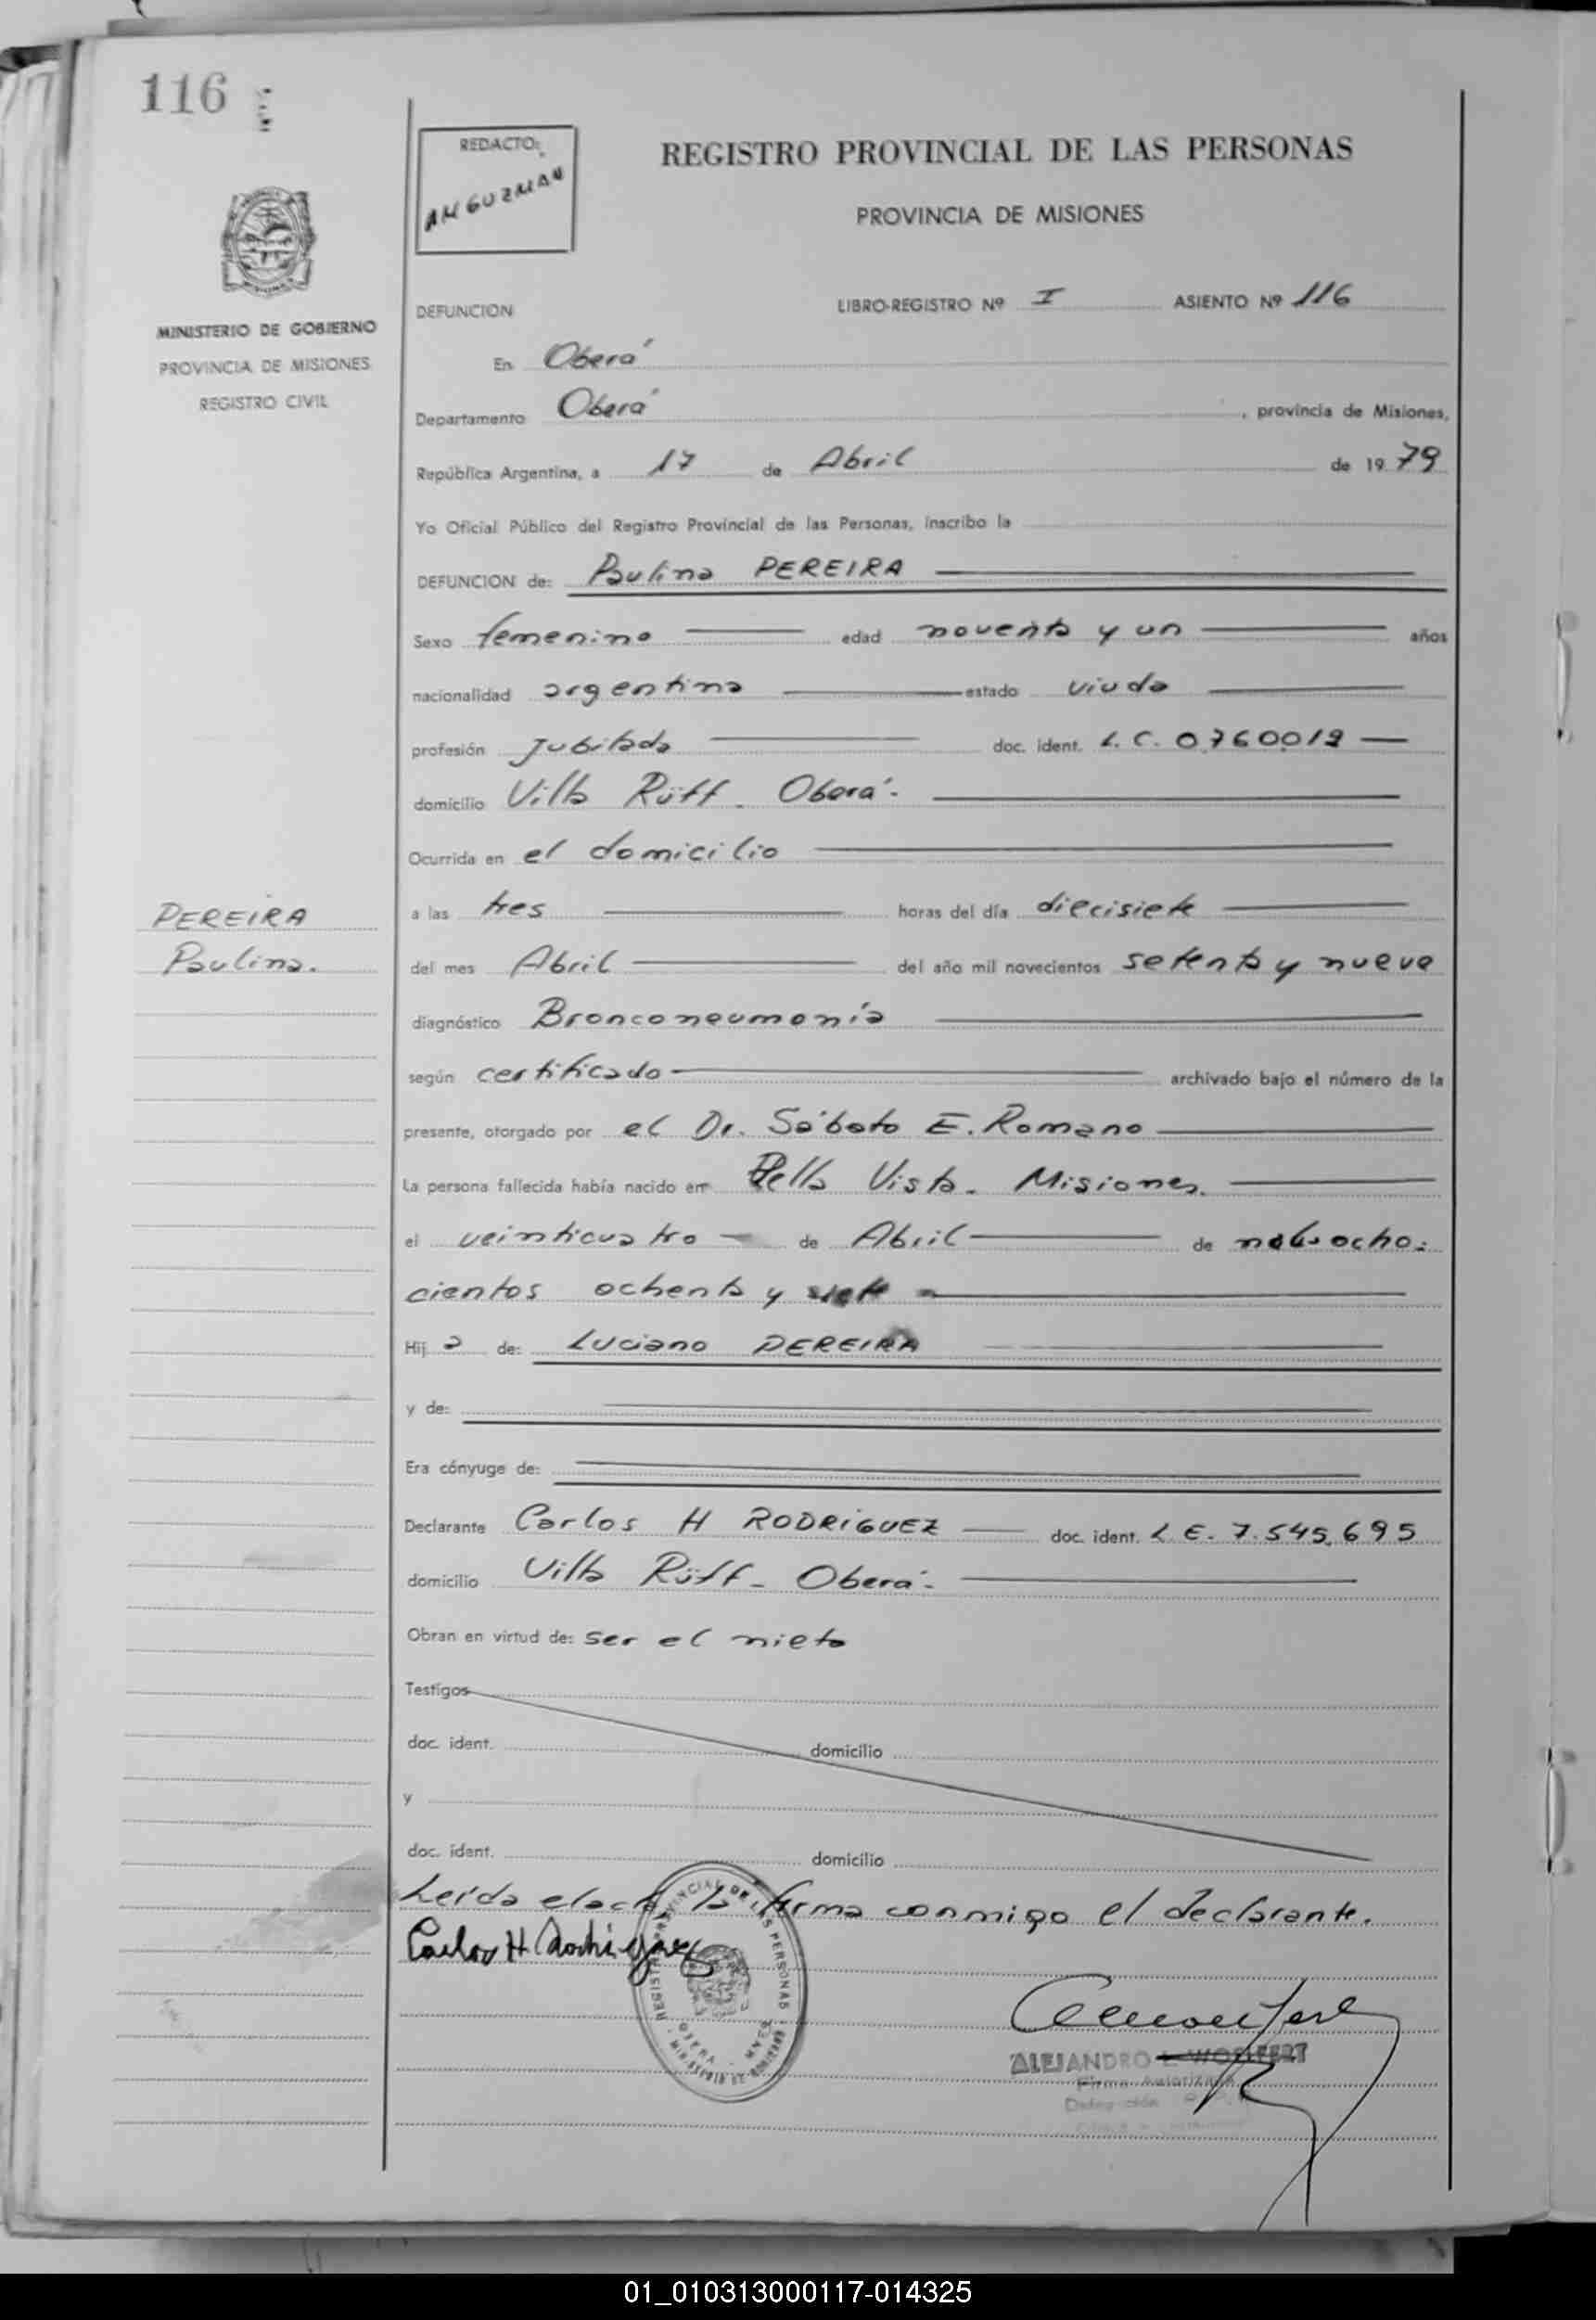 116
REDACTO:
AM GUZMAN
REGISTRO PROVINCIAL DE LAS PERSONAS
PROVINCIA DE MISIONES
MINISTERIO DE GOBIERNO
PROVINCIA DE MISIONES
REGISTRO CIVIL
DEFUNCION LIBRO-REGISTRO Nº I ASIENTO Nº 116
En Oberá
Departamento Oberá, provincia de Misiones,
República Argentina, a 17 de Abril de 1979
Yo Oficial Público del Registro Provincial de las Personas, inscribo la
DEFUNCION de: Paulina PEREIRA
Sexo femenino edad noventa y un años
nacionalidad argentina estado viuda
profesión Jubilada doc. ident. L.C. 0.760.019
domicilio Villa Rüff. Oberá.
Ocurrida en el domicilio
PEREIRA
Paulina.
a las tres horas del día diecisiete
del mes Abril del año mil novecientos setenta y nueve
diagnóstico Bronconeumonía
según certificado archivado bajo el número de la
presente, otorgado por el Dr. Sábato E. Romano
La persona fallecida había nacido en Bella Vista. Misiones.
el veinticuatro de Abril de ocho-
cientos ochenta y siete
Hija de: Luciano PEREIRA
y de:
Era cónyuge de:
Declarante Carlos H RODRIGUEZ doc. ident. L.E. 7.545.695
domicilio Villa Rüff - Oberá.
Obran en virtud de: ser el nieto
Testigos
doc. ident. domicilio
y
doc. ident. domicilio
Leída el acta la firma conmigo el declarante.
Carlos H Rodriguez
REGISTRO PROVINCIAL DE LAS PERSONAS
OBERA - MNES
ALEJANDRO L. WOLFERT
Firma Autorizada
Delegación
01_010313000117-014325